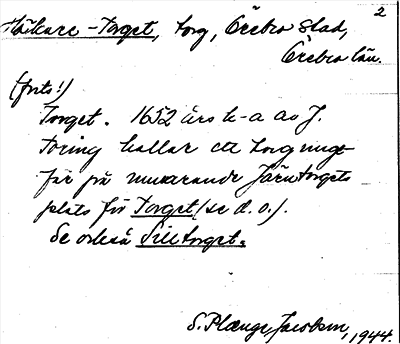 2
Hökare-Torget, torg, Örebro stad,
Örebro län.
(forts.)
Torget. 1652 års k-a av J.
Töring kallar ett torg unge-
fär på nuvarande Järntorgets
plats för Torget (se d. o.).
Se också Silltorget.
S. Plænge Jacobson, 1944.